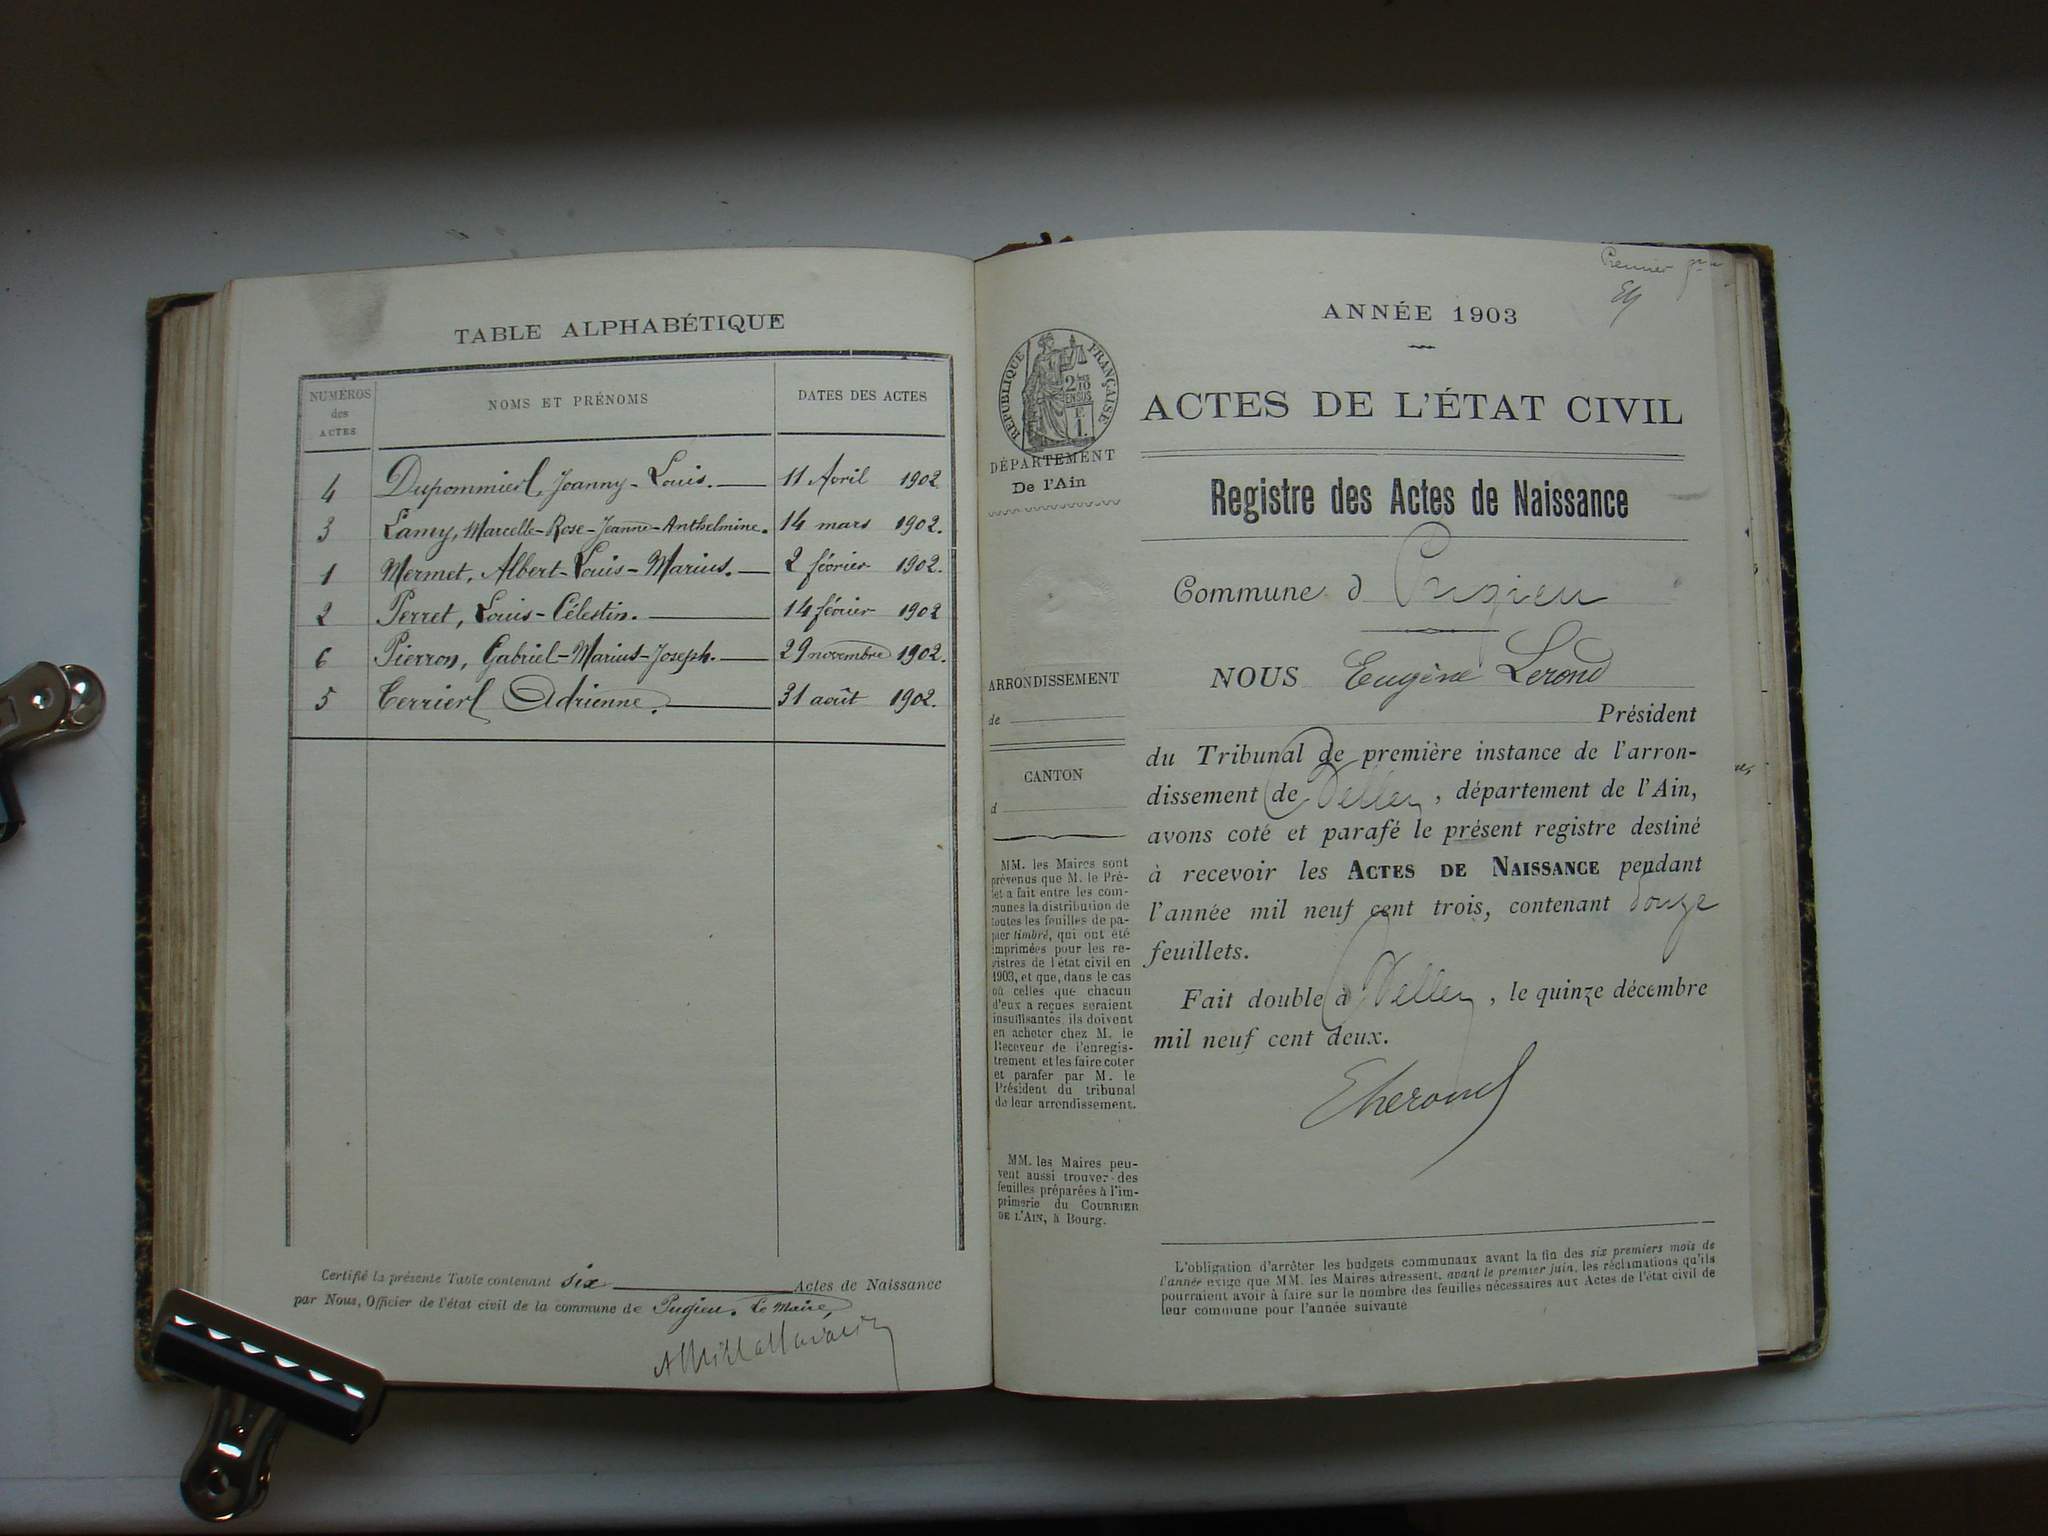 TABLE ALPHABÉTIQUE
NUMÉROS des ACTES NOMS ET PRÉNOMS DATES DES ACTES
4 Dupommier, Joanny-Louis. 11 Avril 1902
3 Lamy, Marcelle-Rose-Jeanne-Anthelmine. 14 mars 1902.
1 Mermet, Albert-Louis-Marius. 2 février 1902.
2 Perret, Louis-Célestin. 14 février 1902
6 Pierron, Gabriel-Marius-Joseph. 29 novembre 1902.
5 Terrier Adrienne. 31 août 1902.
Certifié la présente Table contenant six Actes de Naissance
par Nous, Officier de l'état civil de la commune de Pugieu. Le Maire,
Premier
ANNÉE 1903
RÉPUBLIQUE FRANÇAISE
2 10
EN SUS
ACTES DE L'ÉTAT CIVIL
DÉPARTEMENT
De l'Ain
Registre des Actes de Naissance
Commune d Pugieu
ARRONDISSEMENT
de
CANTON
d
NOUS Eugène Lerond
Président
du Tribunal de première instance de l'arron-
dissement de Belley, département de l'Ain,
avons coté et parafé le présent registre destiné
à recevoir les ACTES DE NAISSANCE pendant
l'année mil neuf cent trois, contenant douze
feuillets.
Fait double à Belley, le quinze décembre
mil neuf cent deux.
ELerond
MM. les Maires sont
prévenus que M. le Pré-
fet a fait entre les com-
munes la distribution de
toutes les feuilles de pa-
pier timbré, qui ont été
imprimées pour les re-
gistres de l'état civil en
1903, et que, dans le cas
où celles que chacun
d'eux a reçues seraient
insuffisantes, ils doivent
en acheter chez M. le
Receveur de l'enregis-
trement et les faire coter
et parafer par M. le
Président du tribunal
de leur arrondissement.
MM. les Maires peu-
vent aussi trouver des
feuilles préparées à l'im-
primerie du COURRIER
DE L'AIN, à Bourg.
L'obligation d'arrêter les budgets communaux avant la fin des six premiers mois de
l'année exige que MM. les Maires adressent, avant le premier juin, les réclamations qu'ils
pourraient avoir à faire sur le nombre des feuilles nécessaires aux Actes de l'état civil de
leur commune pour l'année suivante